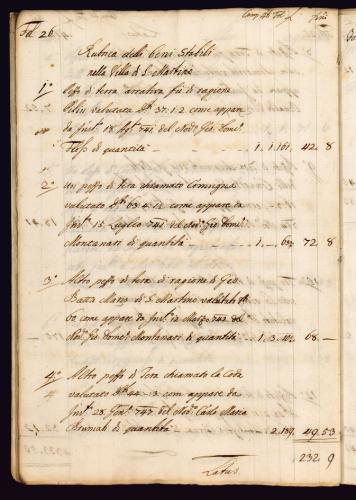 Fol. 26
Rubrica delli beni Stabili
nella Villa di S. Martino
1.° Pezzo di terra arrativa fù di ragione
valutata 37:1:2 come appare
da Inst.° 18 Ag.to 741 del Nod.° Gio: Dom.co
di quantità 1. 1. 161. 42. 8
2.° Un pezzo di terra chiamato
valutato 63:4:12 come appare da
Inst.° 15 Luglio 741 del Not.° Gio: Dom.co
Montanari di quantità 1. 72. 8
3.° Altro pezzo di terra di ragione di Gio:
Batta Maria di S. Martino valutato
come appare da Inst.° 12 Marzo 742 del
Not.° Gio: Dom.co Montanari di quantità 1. 3. 68. —
4.° Altro pezzo di Terra chiamato la
valutato 44 - 3 come appare da
Inst.° 28 Gen.° 747 del Not.° Carlo Maria
di quantità 2. 139. 49. 53
232 9
Latus